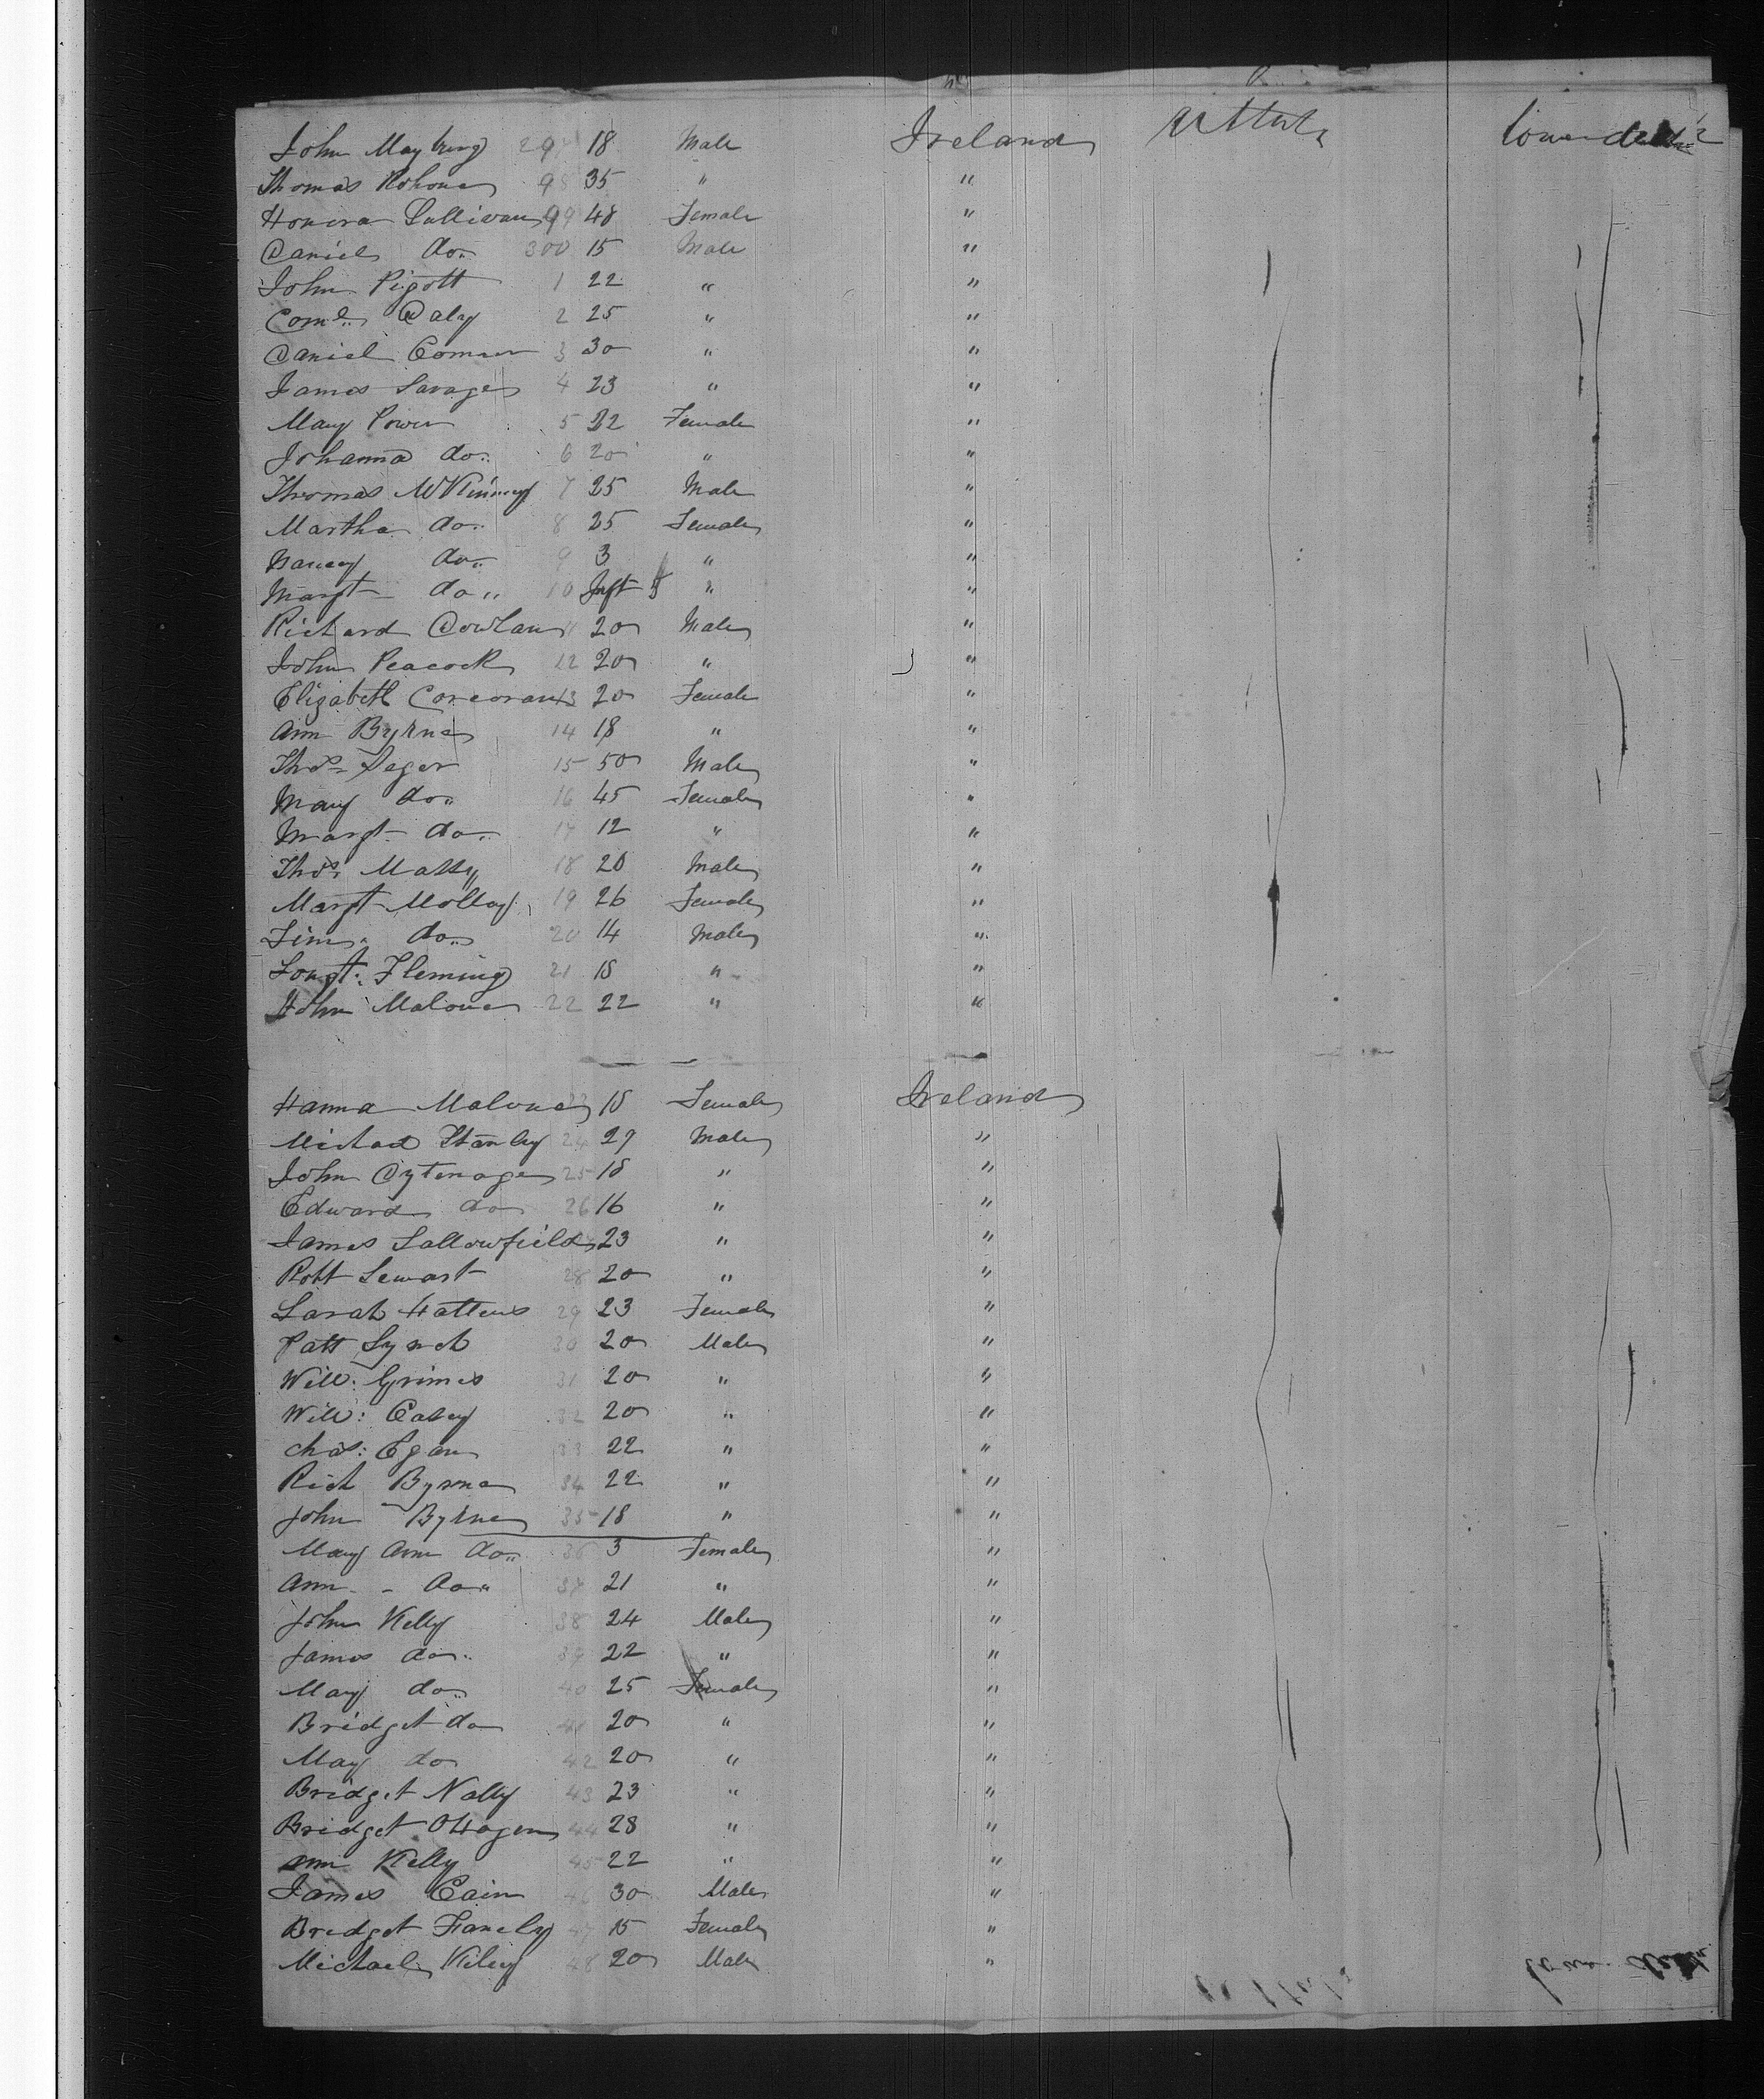 John Mayberry 297 18 Male Ireland U States lower deck
Thomas Mohone 98 35 " "
Honora Sullivan 99 48 Female "
Daniel do.. 300 15 Male "
John Pigott 1 22 " "
Corns. Daly 2 25 " "
Daniel Connor 3 30 " "
James Savage 4 23 " "
Mary Power 5 22 Female "
Johanna do.. 6 20 " "
Thomas McKinney 7 25 Male "
Martha do.. 8 25 Female "
Nancy do.. 9 3 " "
Margt do.. 10 Inft " "
Richard Dowlan 11 20 Male "
John Peacock 12 20 " "
Elizabeth Corcoran 13 20 Female "
Ann Byrne 14 18 " "
Thos. Seger 15 50 Male "
Mary do.. 16 45 Female "
Margt do.. 17 12 " "
Thos. Massy 18 20 Male "
Margt Molloy 19 26 Female "
Tim. do.. 20 14 Male "
Fleming 21 18 " "
John Malone 22 22 " "
Hanna Malone 23 18 Female Ireland
Michael Stanley 24 27 Male "
John 25 18 " "
Edward do 26 16 " "
James Sallowfield 23 " "
Robt Sewart 28 20 " "
Sarah Hattens 29 23 Female "
Patt Lynch 30 20 Male "
Will: Grimes 31 20 " "
Will: Casey 32 20 " "
Chas: Egan 33 22 " "
Rich Byrne 34 22 " "
John Byrne 35 18 " "
Mary Ann do.. 36 3 Female "
Ann - do.. 37 21 " "
John Kelly 38 24 Male "
James do.. 39 22 " "
Mary do.. 40 25 Female "
Bridget do 41 20 " "
Mary do 42 20 " "
Bridget Nally 43 23 " "
Bridget OHagen 44 28 " "
Ann Kelly 45 22 " "
James Cain 46 30 Male "
Bredget 47 15 Female "
Michael Kiley 48 20 Male "